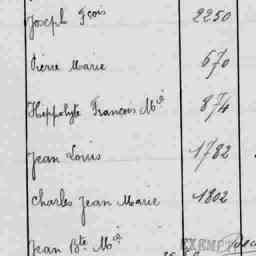 Joseph Fçois 2250
Pierre Marie 670
Hippolyte François Mie 874
Jean Louis 1782
Charles Jean Marie 1802
Jean Bte Mie